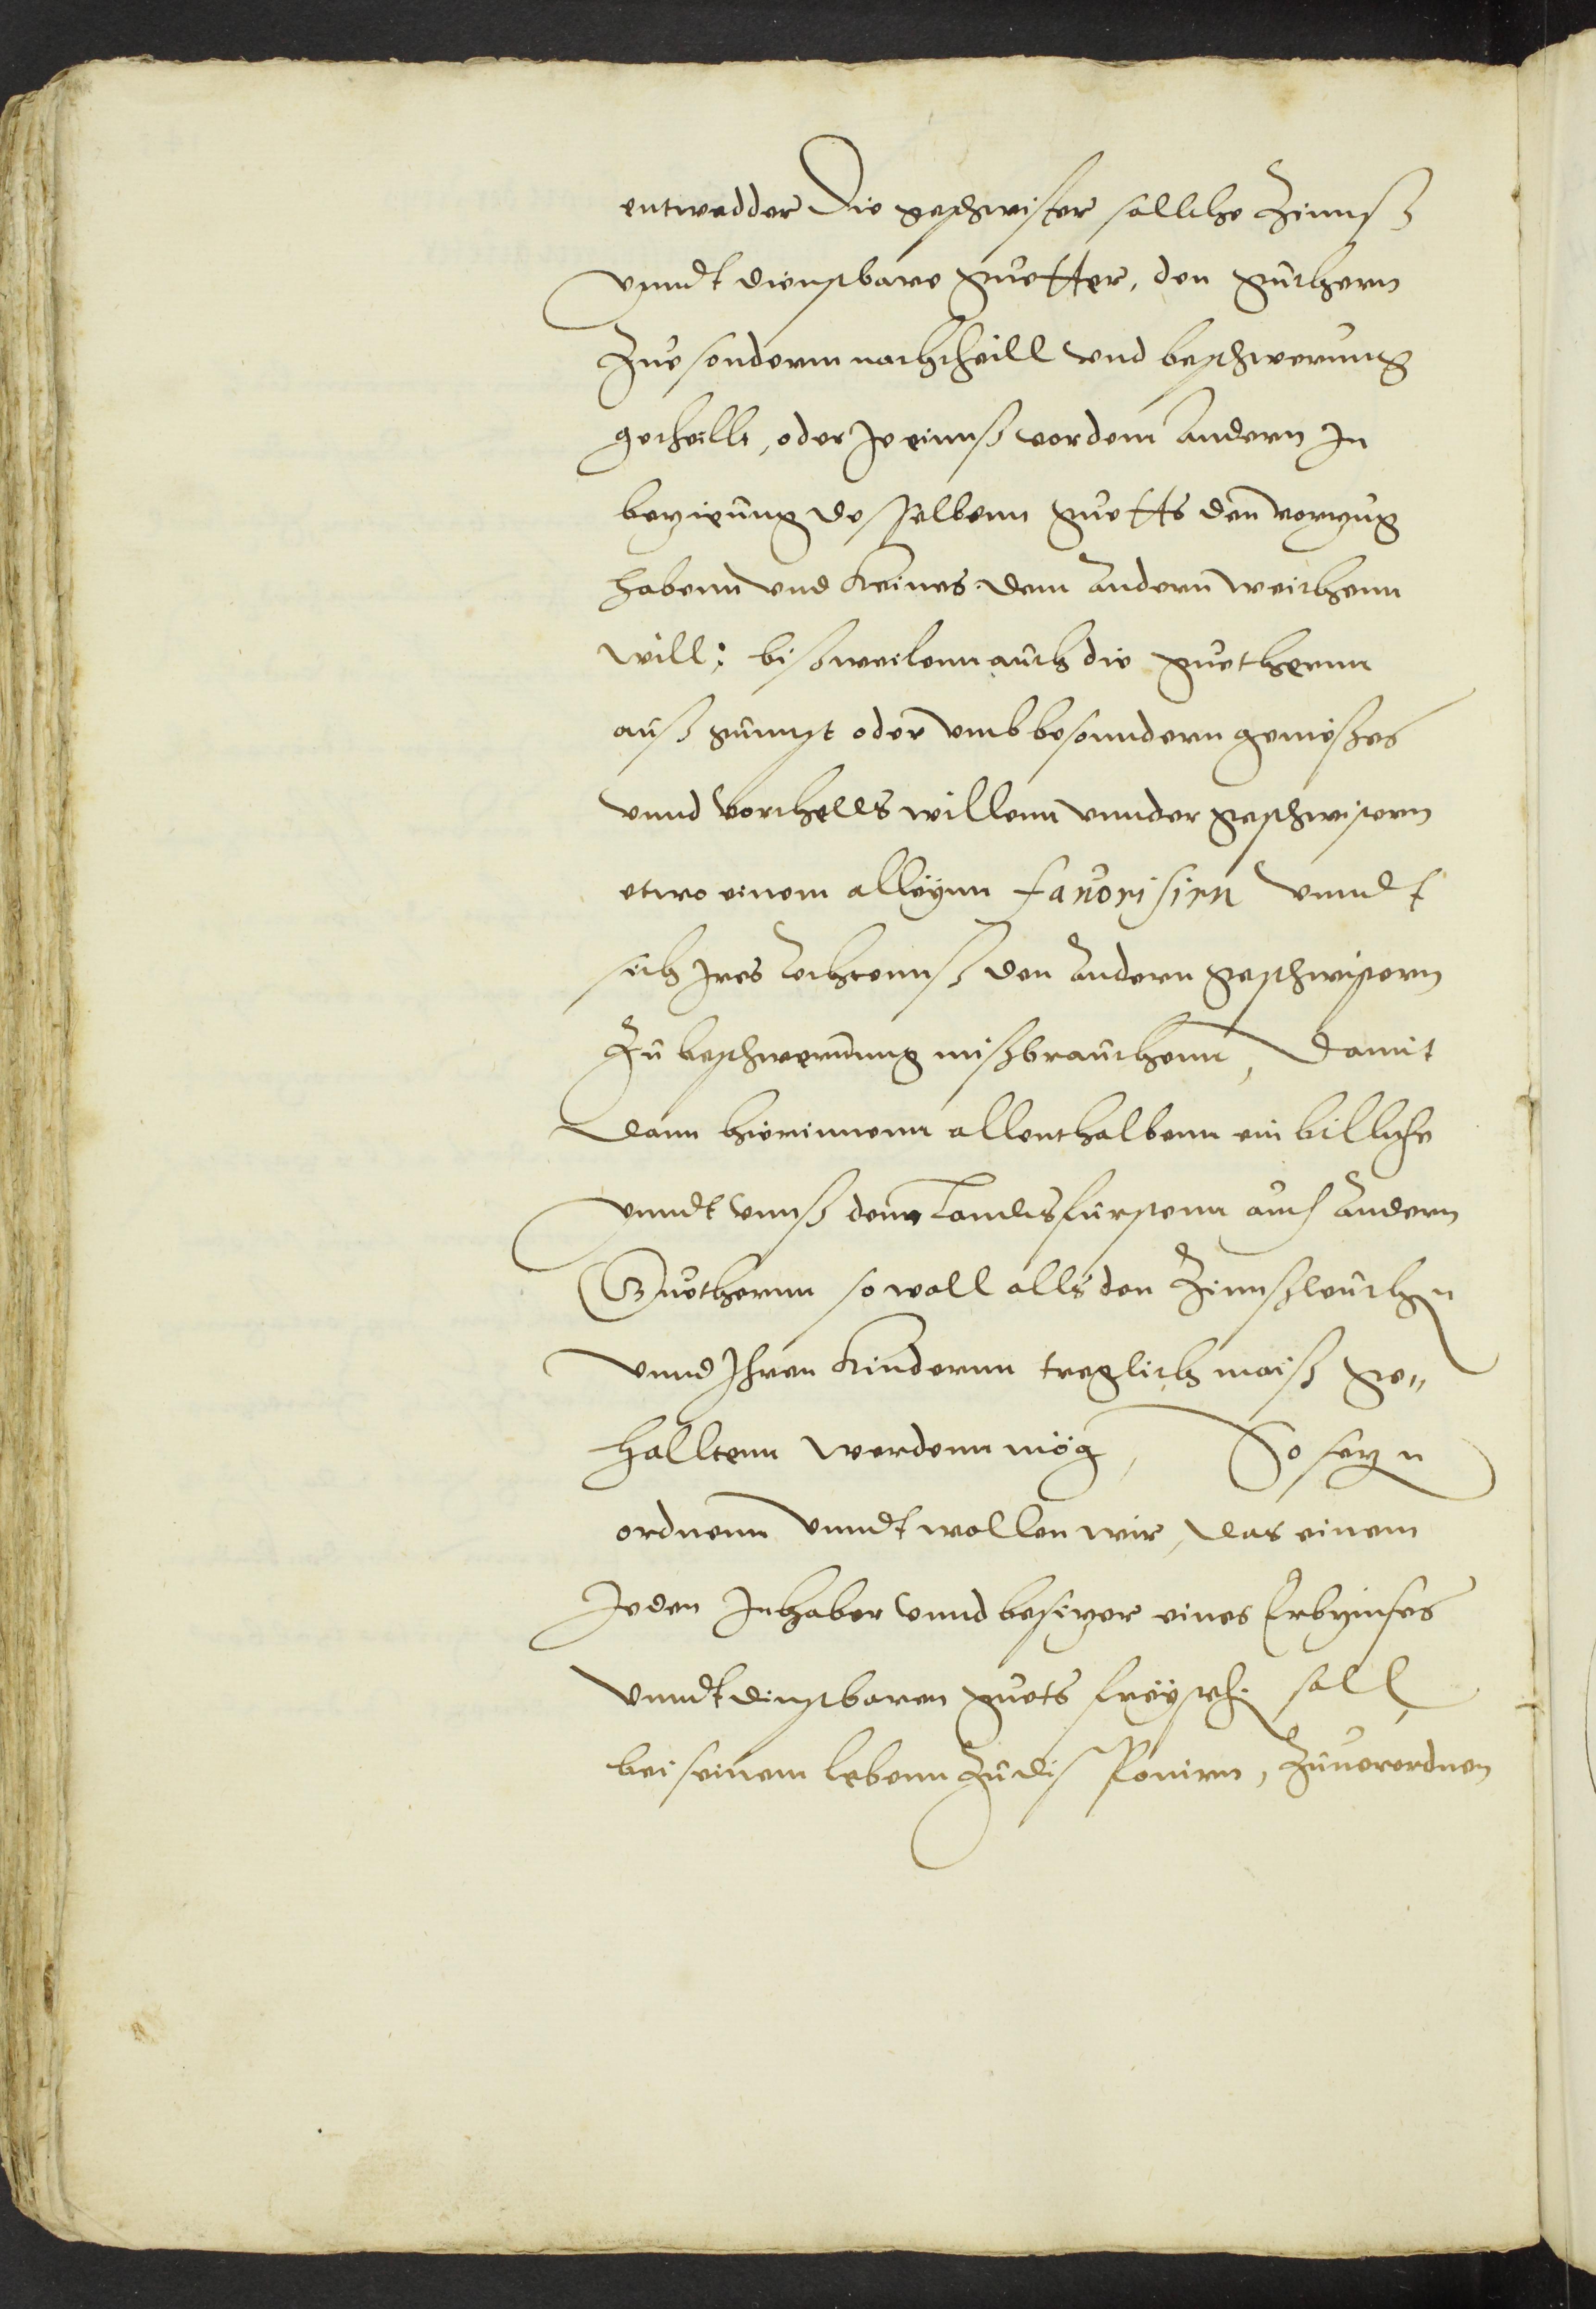 entwedder die geschwister solliche Zinnß
Vnndt dienstbare guetter, den guthern
Zue sonderm nachtheill vnd beschwerung
getheillt, oder Je einnß vor dem Andern In
beziehung desselbenn guetts den vorzug
habenn vnd keines dem Andern weichenn
will; bißweilenn auch die guethernn
auß gunnst oder vmb besonndern genießes
vnnd vortheils willenn vnnder geschwistern
etwo einem alleynn favorisirn vnndt
sich Ires Rechtennß den Andern geschwistern
Zu beschwernnung mißbrauchenn, Damit
dann hierinnenn allenthalbenn ein billiche
Vnndt vnnß dem Landtsfürstenn auch Andern
Guethernn so woll allß den Zinnßleuthen
vnnd Ihren Kindernn treglich maiß ge„
halltenn werdenn mög, So sezen
ordnenn vnndt wollen wir, das einem
Jeden Inhaber vnnd besizer eines Erbzinses
vnndt dinstbaren guets freysteh: soll,
bei seinem lebenn Zu disponirn, Zuuerordnen